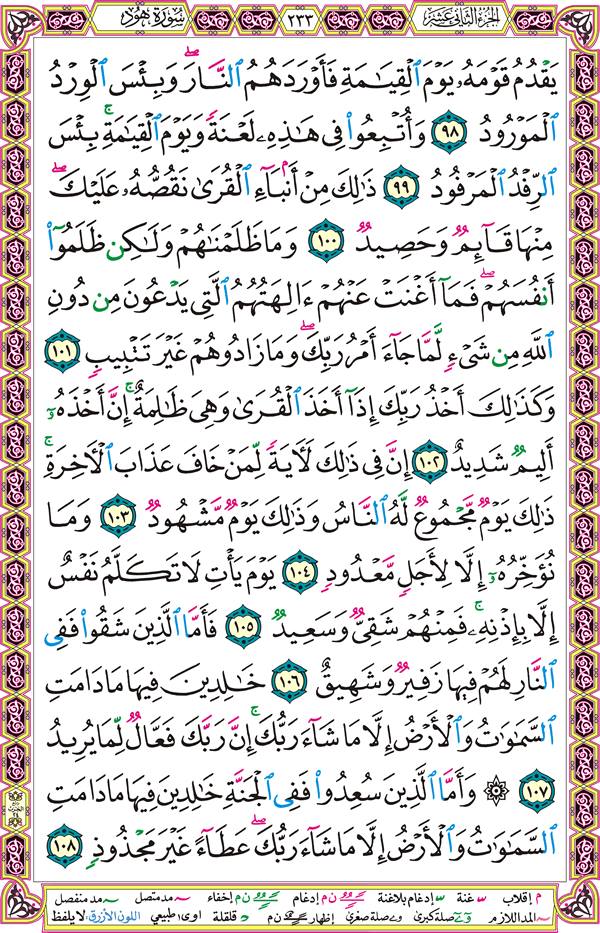 الجزء الثاني عشر ٢٣٣ سورة هود
يَقْدُمُ قَوْمَهُۥ يَوْمَ ٱلْقِيَٰمَةِ فَأَوْرَدَهُمُ ٱلنَّارَۖ وَبِئْسَ ٱلْوِرْدُ
ٱلْمَوْرُودُ ٩٨ وَأُتْبِعُوا۟ فِى هَٰذِهِۦ لَعْنَةً وَيَوْمَ ٱلْقِيَٰمَةِۚ بِئْسَ
ٱلرِّفْدُ ٱلْمَرْفُودُ ٩٩ ذَٰلِكَ مِنْ أَنۢبَآءِ ٱلْقُرَىٰ نَقُصُّهُۥ عَلَيْكَۖ
مِنْهَا قَآئِمٌ وَحَصِيدٌ ١٠٠ وَمَا ظَلَمْنَٰهُمْ وَلَٰكِن ظَلَمُوٓا۟
أَنفُسَهُمْۖ فَمَآ أَغْنَتْ عَنْهُمْ ءَالِهَتُهُمُ ٱلَّتِى يَدْعُونَ مِن دُونِ
ٱللَّهِ مِن شَىْءٍ لَّمَّا جَآءَ أَمْرُ رَبِّكَۖ وَمَا زَادُوهُمْ غَيْرَ تَتْبِيبٍ ١٠١
وَكَذَٰلِكَ أَخْذُ رَبِّكَ إِذَآ أَخَذَ ٱلْقُرَىٰ وَهِىَ ظَٰلِمَةٌۚ إِنَّ أَخْذَهُۥٓ
أَلِيمٌ شَدِيدٌ ١٠٢ إِنَّ فِى ذَٰلِكَ لَءَايَةً لِّمَنْ خَافَ عَذَابَ ٱلْءَاخِرَةِۚ
ذَٰلِكَ يَوْمٌ مَّجْمُوعٌ لَّهُ ٱلنَّاسُ وَذَٰلِكَ يَوْمٌ مَّشْهُودٌ ١٠٣ وَمَا
نُؤَخِّرُهُۥٓ إِلَّا لِأَجَلٍ مَّعْدُودٍ ١٠٤ يَوْمَ يَأْتِ لَا تَكَلَّمُ نَفْسٌ
إِلَّا بِإِذْنِهِۦۚ فَمِنْهُمْ شَقِىٌّ وَسَعِيدٌ ١٠٥ فَأَمَّا ٱلَّذِينَ شَقُوا۟ فَفِى
ٱلنَّارِ لَهُمْ فِيهَا زَفِيرٌ وَشَهِيقٌ ١٠٦ خَٰلِدِينَ فِيهَا مَا دَامَتِ
ٱلسَّمَٰوَٰتُ وَٱلْأَرْضُ إِلَّا مَا شَآءَ رَبُّكَۚ إِنَّ رَبَّكَ فَعَّالٌ لِّمَا يُرِيدُ
١٠٧ ۞ وَأَمَّا ٱلَّذِينَ سُعِدُوا۟ فَفِى ٱلْجَنَّةِ خَٰلِدِينَ فِيهَا مَا دَامَتِ
ٱلسَّمَٰوَٰتُ وَٱلْأَرْضُ إِلَّا مَا شَآءَ رَبُّكَۖ عَطَآءً غَيْرَ مَجْذُوذٍ ١٠٨
م إقلاب غنة إدغام بلاغنة ن م إدغام إخفاء مد متصل مد منفصل
المد اللازم صلة كبرى صلة صغرى إظهار ن م قلقلة اوى طبيعي اللون الأزرق: لا يلفظ